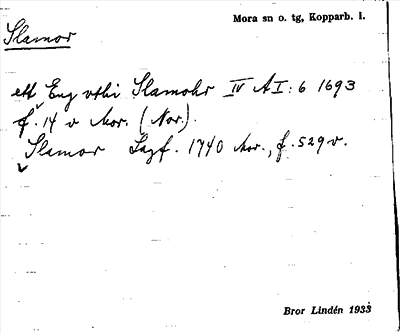 Mora sn o. tg, Kopparb. l.
Slamor
ett Eng vthi Slamohr IV A I : 6 1693
f. 14 v Mor. (Nor.).
Slamor Lagf. 1740 Mor., f. 529 v.
Bror Lindén 1933